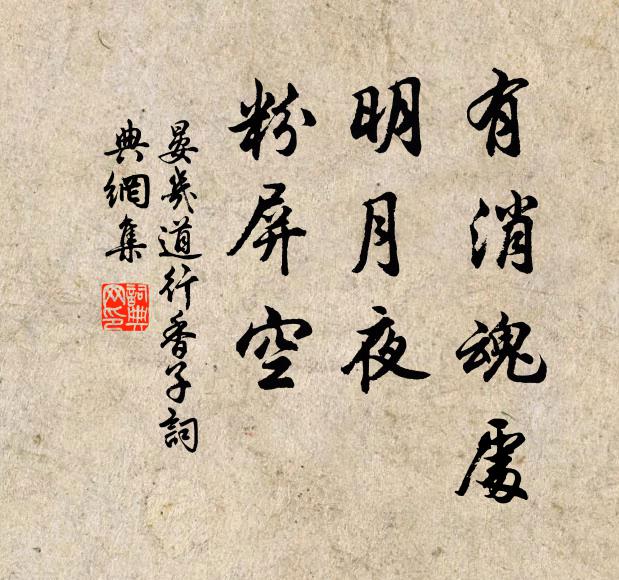 有消魂處
明月夜
粉屏空
晏幾道行香子詞
典網集
詞典網印